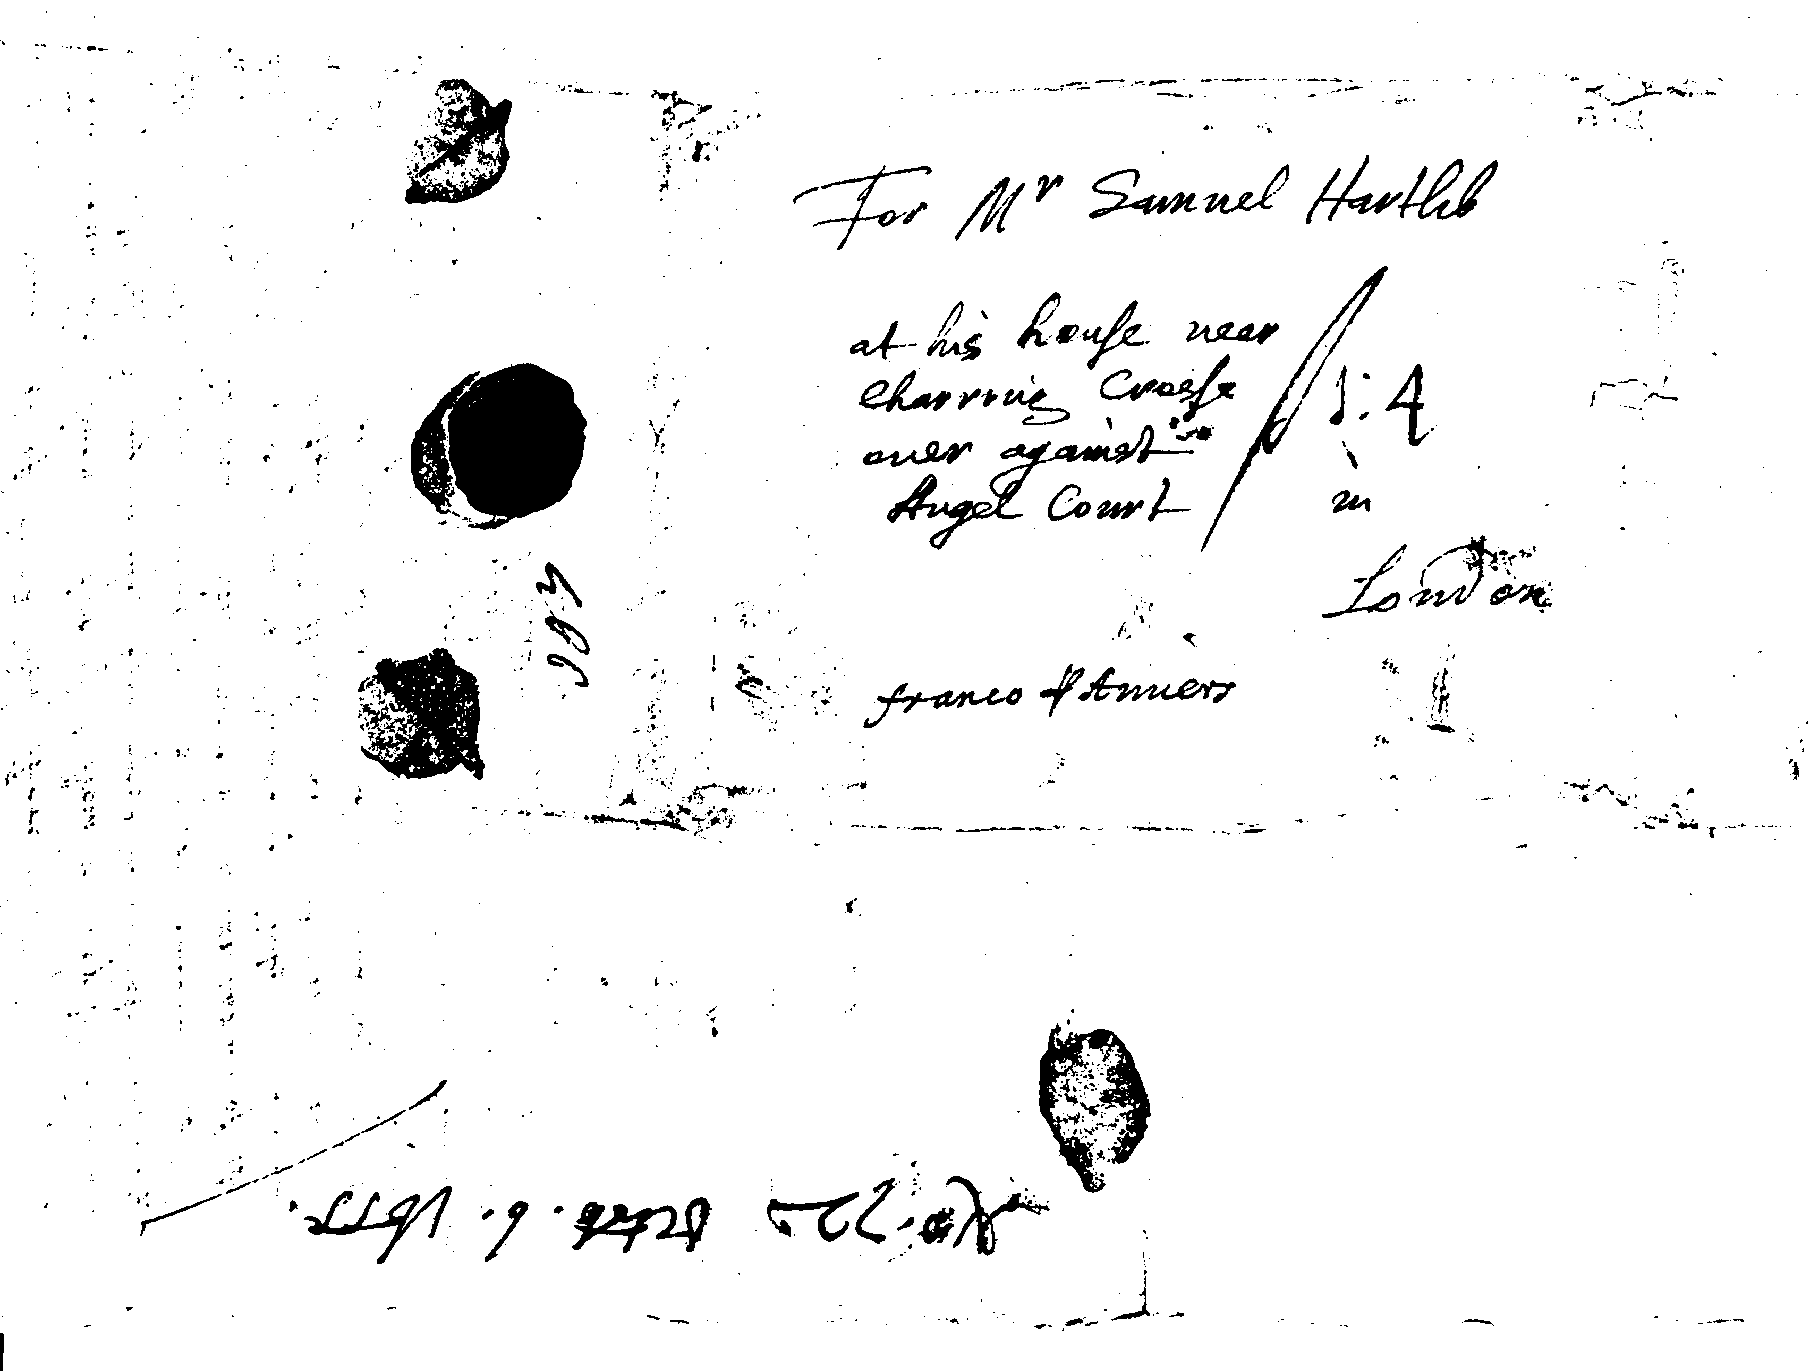 For Mr Samuel Hartlib
at his house near
Charring Crosse
ouer against
Angel Court
1:4
in
London
franco Anuers
No. 22 Octob. 6. 1655.